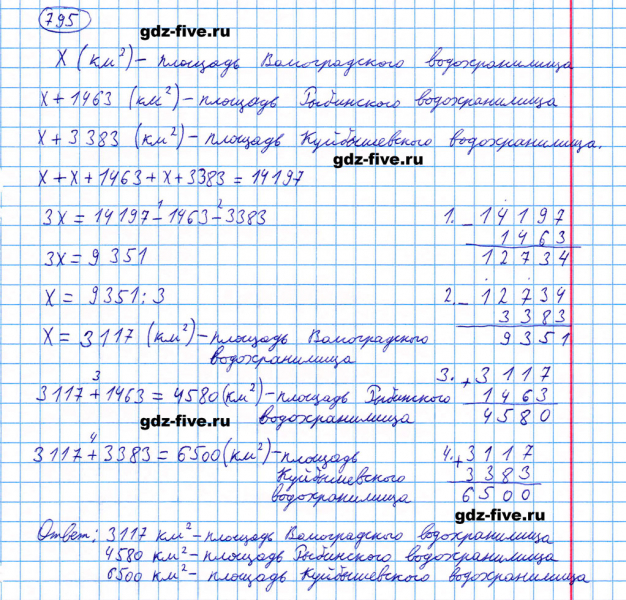 795
gdz-five.ru
x (км²) – площадь Волгоградского водохранилища
x + 1463 (км²) – площадь Рыбинского водохранилища
x + 3383 (км²) – площадь Куйбышевского водохранилища.
gdz-five.ru
x + x + 1463 + x + 3383 = 14197
1 2
3x = 14197 – 1463 – 3383
3x = 9351
x = 9351 : 3
x = 3117 (км²) – площадь Волгоградского
водохранилища
3
3117 + 1463 = 4580 (км²) – площадь Рыбинского
водохранилища
gdz-five.ru
4
3117 + 3383 = 6500 (км²) – площадь
Куйбышевского
водохранилища
1. – 14197
1463
12734
2. – 12734
3383
9351
3. + 3117
1463
4580
4. + 3117
3383
6500
gdz-five.ru
Ответ: 3117 км² – площадь Волгоградского водохранилища
4580 км² – площадь Рыбинского водохранилища
6500 км² – площадь Куйбышевского водохранилища